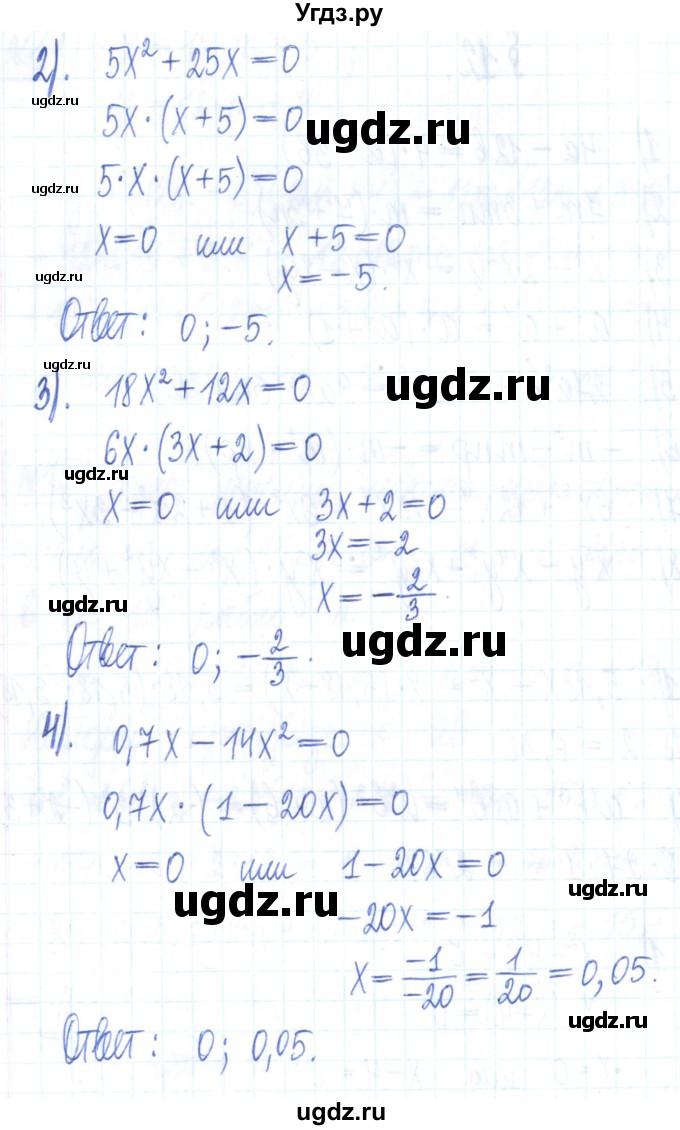 Угдз.ру
2). 5x² + 25x = 0
ugdz.ru
5x · (x + 5) = 0
ugdz.ru
5 · x · (x + 5) = 0
ugdz.ru
x = 0 или x + 5 = 0
x = −5.
ugdz.ru
Ответ: 0; −5.
ugdz.ru
3). 18x² + 12x = 0
ugdz.ru
6x · (3x + 2) = 0
ugdz.ru
x = 0 или 3x + 2 = 0
3x = −2
x = −2/3.
ugdz.ru
Ответ: 0; −2/3.
ugdz.ru
4). 0,7x − 14x² = 0
0,7x · (1 − 20x) = 0
x = 0 или 1 − 20x = 0
ugdz.ru
ugdz.ru
−20x = −1
x = −1/−20 = 1/20 = 0,05.
ugdz.ru
Ответ: 0; 0,05.
ugdz.ru